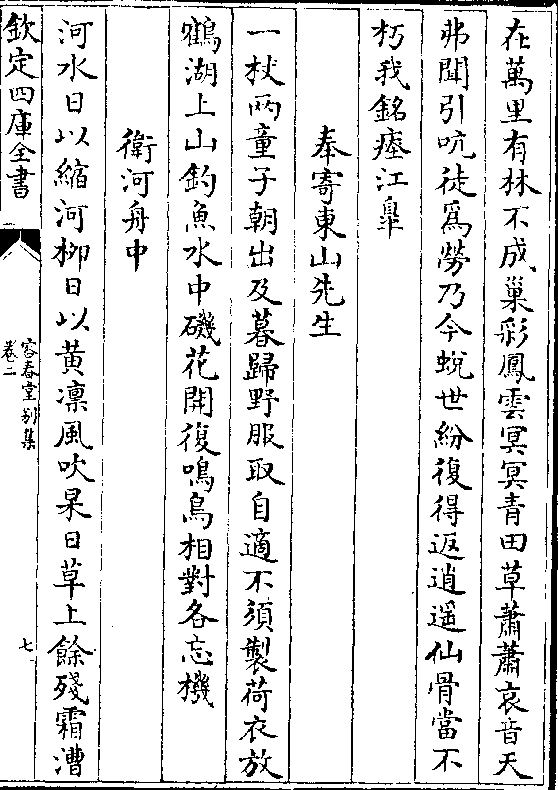 在萬里有林不成巢彩鳳雲冥冥青田草蕭蕭哀音天
弗聞引吭徒爲勞乃今蛻世紛復得返逍遥仙骨當不
朽我銘瘞江臯
奉寄東山先生
一杖兩童子朝出及暮歸野服取自適不須製荷衣放
鶴湖上山釣魚水中磯花開復鳴鳥相對各忘機
衛河舟中
河水日以縮河栁日以黄凛風吹杲日草上餘殘霜漕
欽定四庫全書
容春堂别集
卷二
七